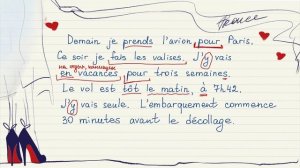 France
Demain je prends l'avion pour Paris.
Ce soir je fais les valises. J'y vais
en vacances, pour trois semaines.
Le vol est tôt le matin, à 7h42.
J'y vais seule. L'embarquement commence
30 minutes avant le décollage.